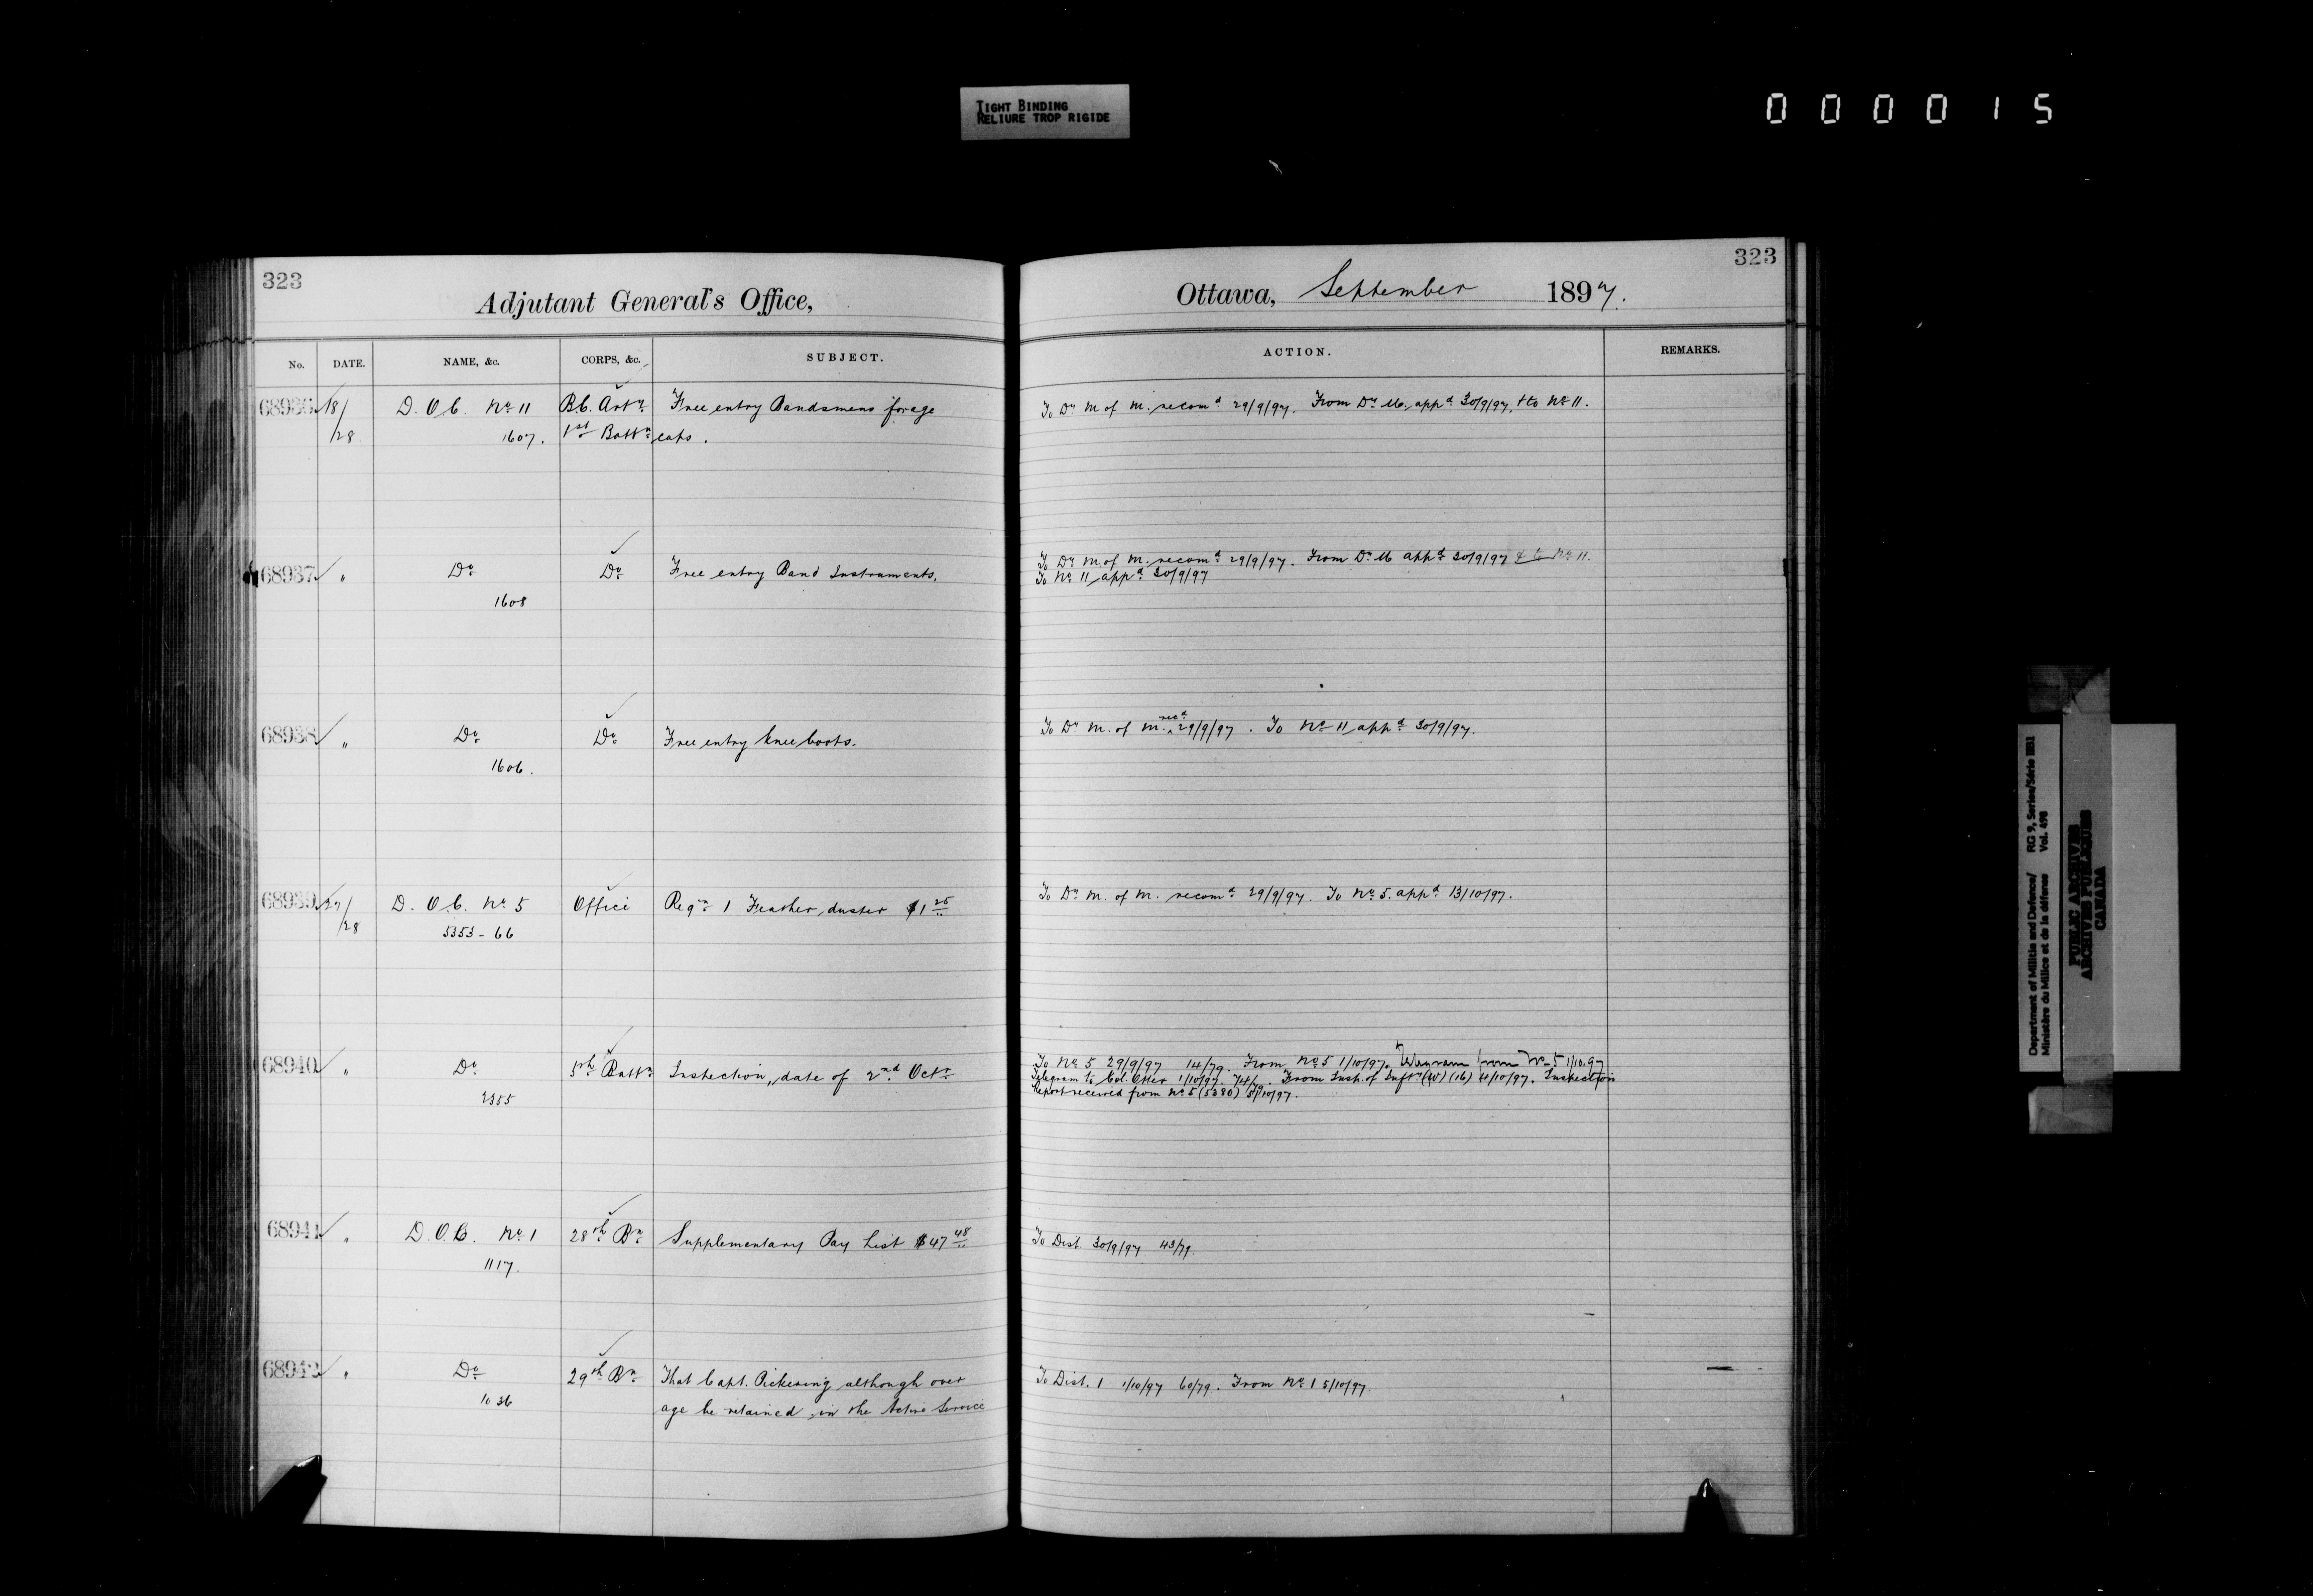 TIGHT BINDING
RELIURE TROP RIGIDE
000015
323
Adjutant General's Office,
No. DATE. NAME, &c. CORPS, &c. SUBJECT.
68936 18/ D.O.C. No 11 B.C. Arty Free entry Bandsmens forage
/28 1607. 1st Battn caps.
68937 " Do Do Free entry Band Instruments.
1608
68938 " Do Do Free entry knee boots.
1606.
68939 27/ D.O.C. No 5 Office Reqn 1 Feather duster $1 25
/28 5353-66
68940 " Do 5th Battn Inspection, date of 2nd Octr
2355
68941 " D.O.C. No 1 28th Bn Supplementary Pay List $47 48
1117.
68942 " Do 29th Bn That Capt. Pickering although over
1036 age be retained in the Active Service
323
Ottawa, September 1897.
ACTION. REMARKS.
To Dy M of M. recomd 29/9/97. From Dy M. appd 30/9/97, + to No 11.
To Dy M of M. recomd 29/9/97. From Dy M appd 30/9/97 & to No 11.
To No 11 appd 30/9/97
To Dy M. of M. recd 29/9/97. To No 11 appd 30/9/97.
To Dy M. of M. recomd 29/9/97. To No 5. appd 13/10/97.
To No 5 29/9/97 14/79. From No 5 1/10/97. Telegram from No 5 1/10.97
Telegram to Col. Otter 1/10/97. 74/79. From Insp. of Inftry (16) 4/10/97. Inspection
Report received from No 5 (5380) 5/10/97.
To Dist. 30/9/97 43/79.
To Dist. 1 1/10/97 60/79. From No 1 5/10/97.
Department of Militia and Defence/ RG 9, Series/Série IIB1
Ministère du Milice et de la défense Vol. 498
PUBLIC ARCHIVES
ARCHIVES PUBLIQUES
CANADA